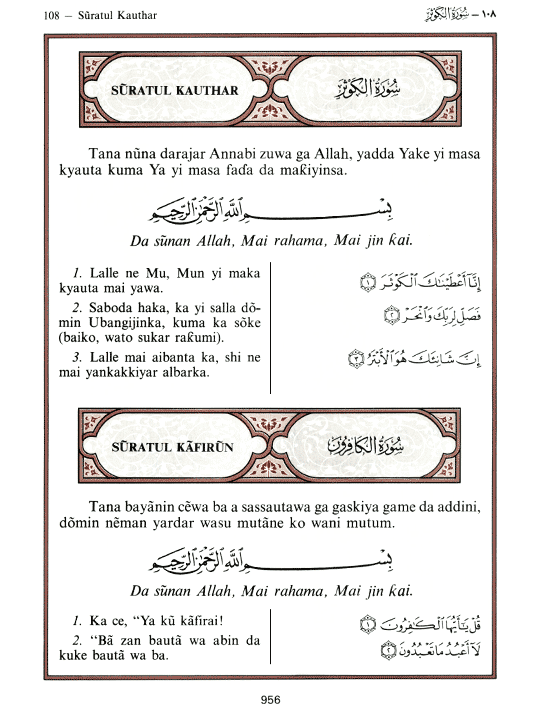 108 – Sũratul Kauthar
١٠٨ – سُورَةُ الكَوْثَر
SŨRATUL KAUTHAR
سُورَةُ الكَوْثَرِ
Tana nũna darajar Annabi zuwa ga Allah, yadda Yake yi masa
kyauta kuma Ya yi masa faɗa da maƙiyinsa.
بِسْمِ اللَّهِ الرَّحْمَٰنِ الرَّحِيمِ
Da sũnan Allah, Mai rahama, Mai jin ƙai.
1. Lalle ne Mu, Mun yi maka
kyauta mai yawa.
إِنَّا أَعْطَيْنَاكَ الْكَوْثَرَ ١
2. Saboda haka, ka yi salla dõ-
min Ubangijinka, kuma ka sõke
(baiko, wato sukar raƙumi).
فَصَلِّ لِرَبِّكَ وَانْحَرْ ٢
3. Lalle mai aibanta ka, shi ne
mai yankakkiyar albarka.
إِنَّ شَانِئَكَ هُوَ الْأَبْتَرُ ٣
SŨRATUL KÃFIRŨN
سُورَةُ الكَافِرُونَ
Tana bayãnin cẽwa ba a sassautawa ga gaskiya game da addini,
dõmin nẽman yardar wasu mutãne ko wani mutum.
بِسْمِ اللَّهِ الرَّحْمَٰنِ الرَّحِيمِ
Da sũnan Allah, Mai rahama, Mai jin ƙai.
1. Ka ce, “Ya kũ kãfirai!
قُلْ يَا أَيُّهَا الْكَافِرُونَ ١
2. “Bã zan bautã wa abin da
kuke bautã wa ba.
لَا أَعْبُدُ مَا تَعْبُدُونَ ٢
956